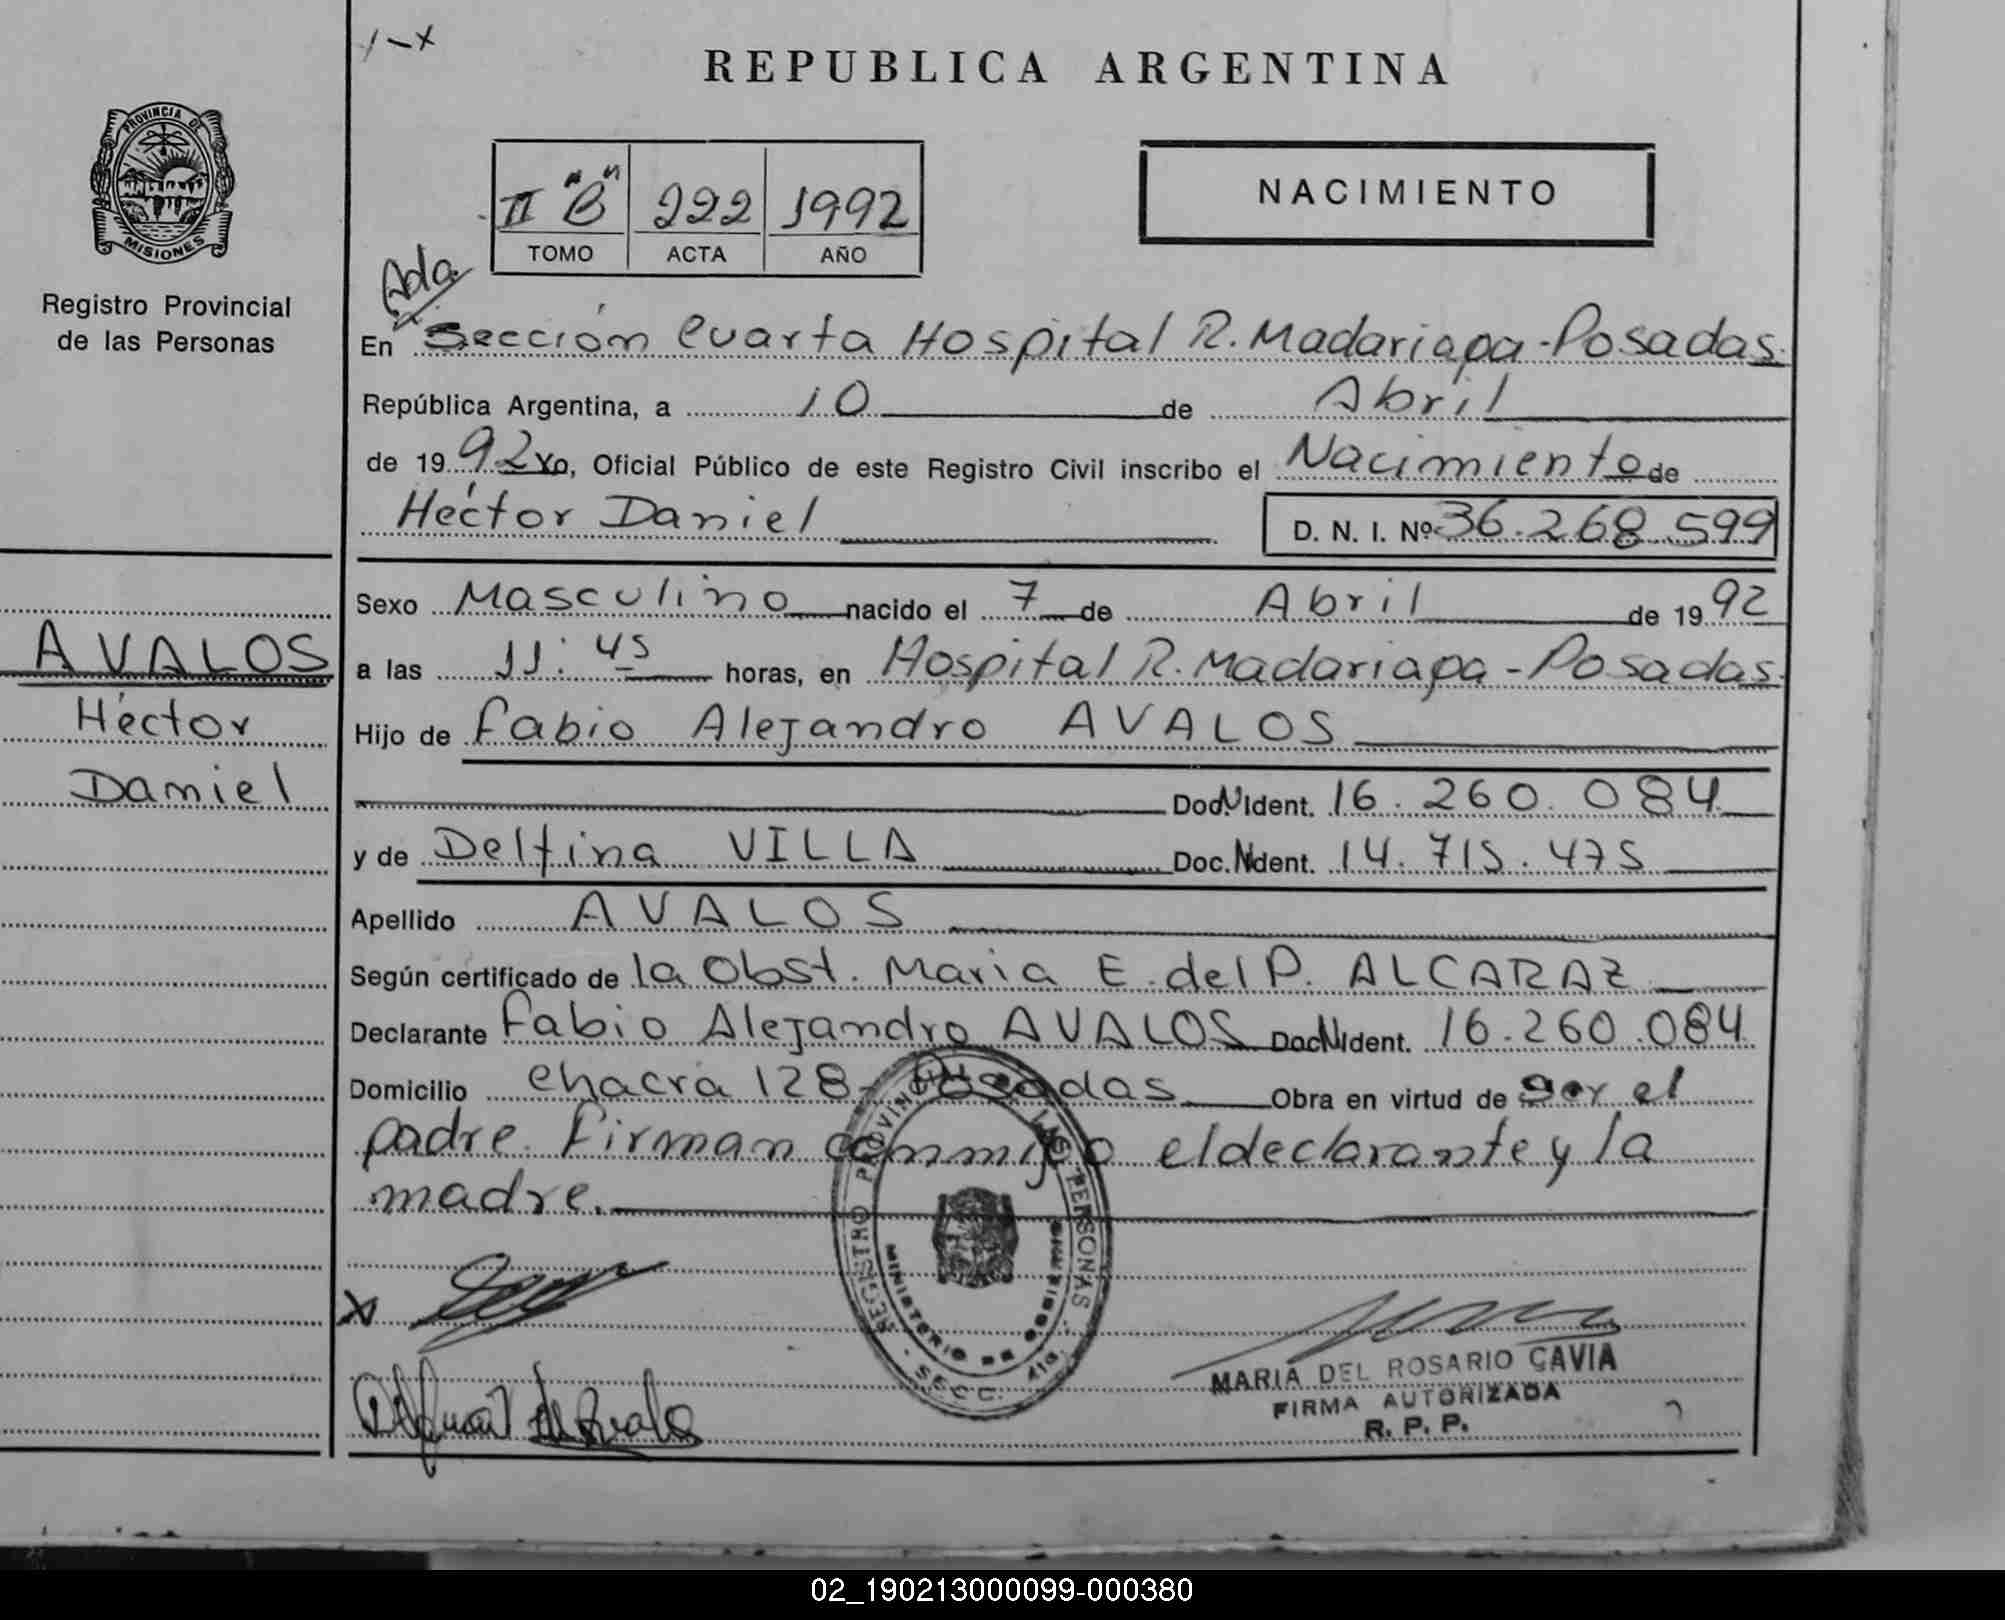 1-x
REPUBLICA ARGENTINA
PROVINCIA DE
MISIONES
Registro Provincial
de las Personas
II "B" 222 1992
TOMO ACTA AÑO
NACIMIENTO
Ada
En Sección Cuarta Hospital R. Madariaga - Posadas
República Argentina, a 10 de Abril
de 1992 Yo, Oficial Público de este Registro Civil inscribo el Nacimiento de
Héctor Daniel D. N. I. Nº 36.268.599
Sexo Masculino nacido el 7 de Abril de 1992
AVALOS
a las 11:45 horas, en Hospital R. Madariaga - Posadas.
Héctor
Hijo de Fabio Alejandro AVALOS
Daniel
Doc.N Ident. 16.260.084
y de Delfina VILLA Doc.N Ident. 14.715.475
Apellido AVALOS
Según certificado de la Obst. Maria E. del P. ALCARAZ
Declarante Fabio Alejandro AVALOS Doc.N Ident. 16.260.084
Domicilio chacra 128 - Posadas Obra en virtud de ser el
padre. Firman conmigo el declarante y la
madre.
REGISTRO PROVINCIAL DE LAS PERSONAS
MINISTERIO DE GOBIERNO
SECC. 4ta.
x
MARIA DEL ROSARIO CAVIA
FIRMA AUTORIZADA
R. P. P.
02_190213000099-000380